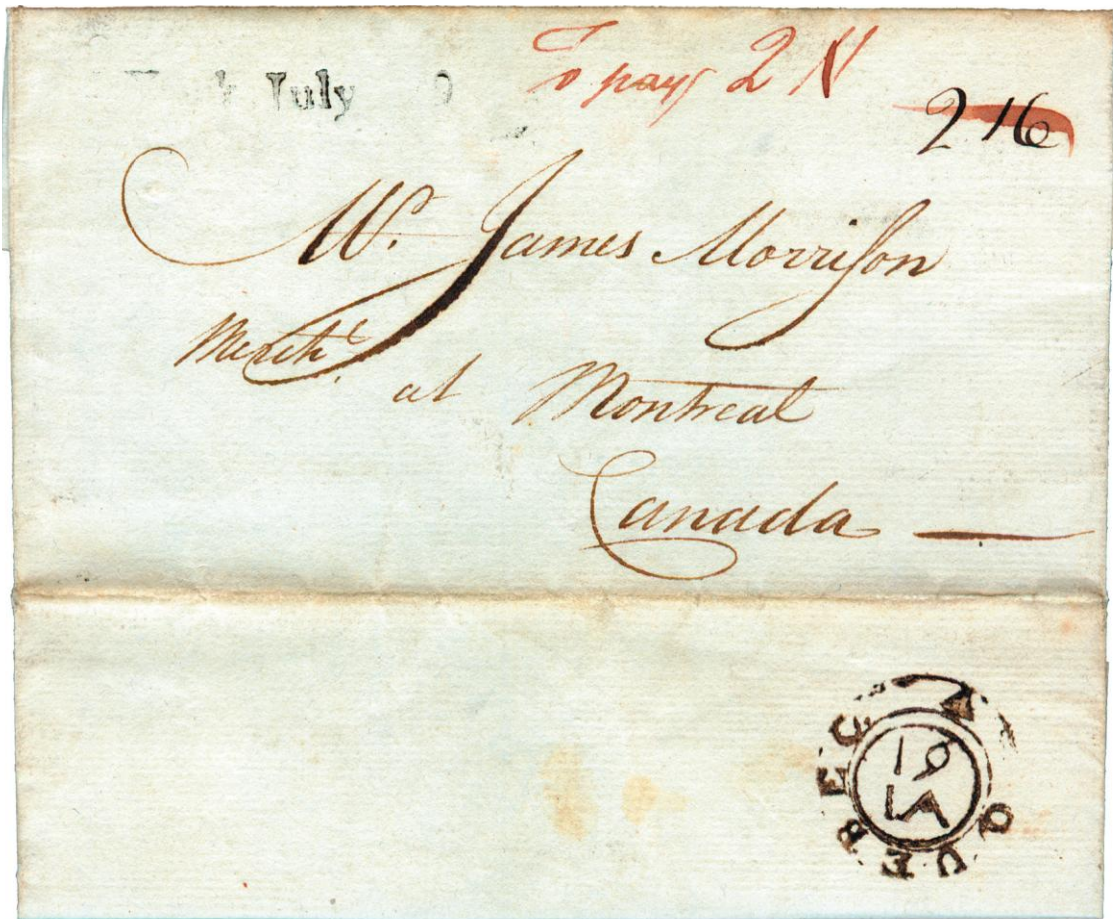 July
To pay 2 N
2 16
Mr. James Morrison
Mercht.
at Montreal
Canada
QUEBEC
19
IA